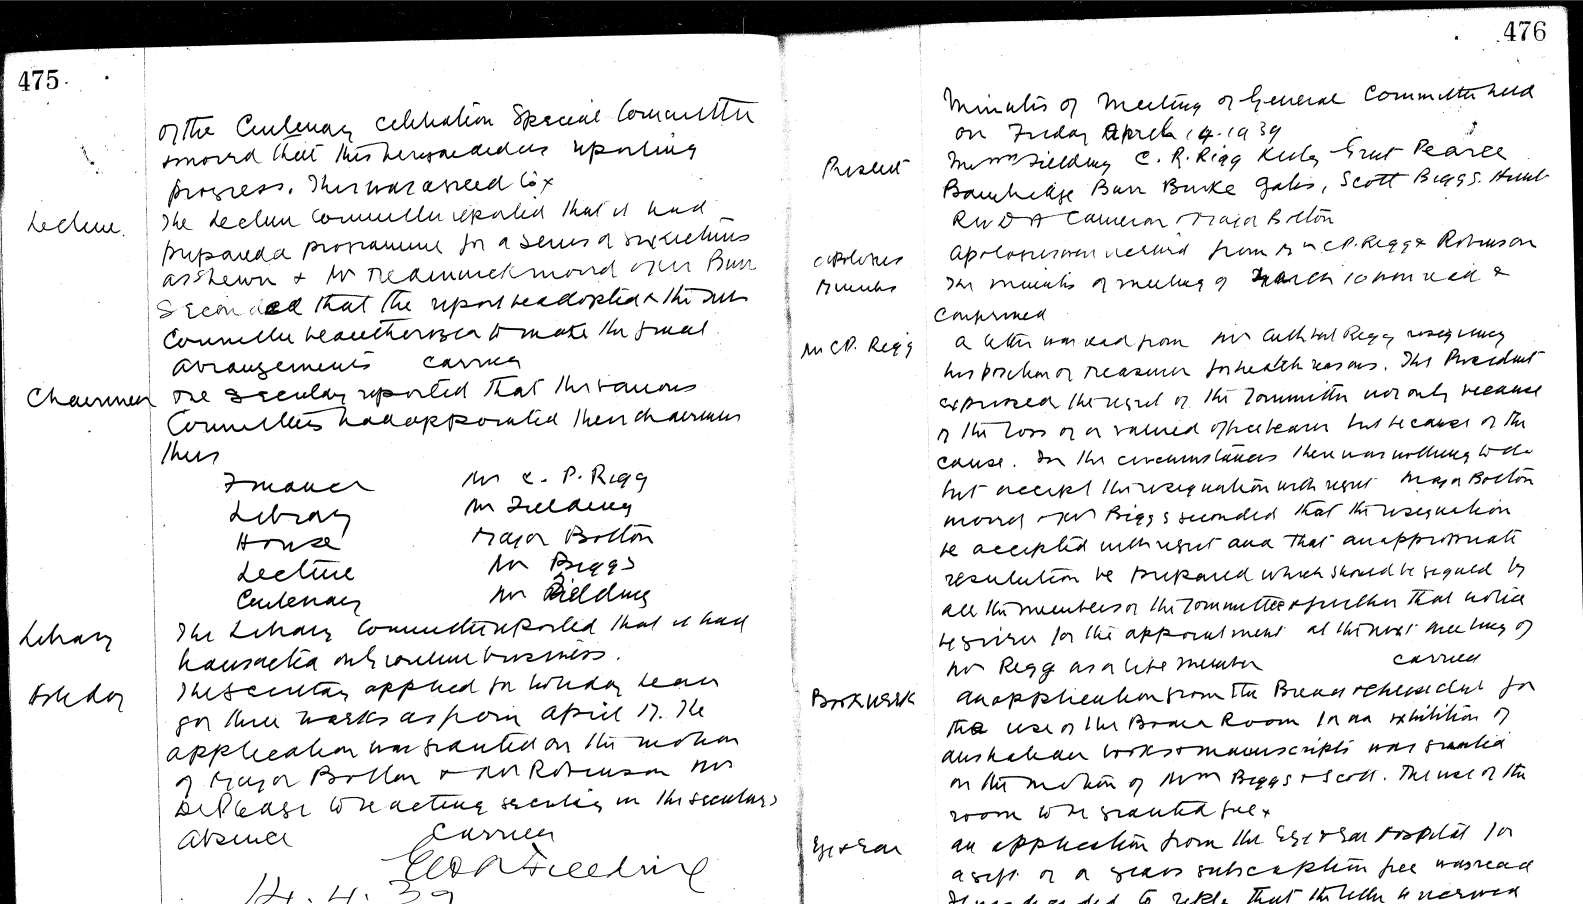 475
of the Centenary Celebration Special Committee
moved that this be regarded as reporting
progress. This was agreed to
Lecture. The Lecture Committee reported that it had
prepared a programme for a series of six lectures
as shewn & Mr moved & Mr Burr
seconded that the report be adopted & the Sub
Committee be authorised to make the final
arrangements carried
Chairmen The Secretary reported that the various
Committees had appointed their chairmen
thus
Finance Mr C. P. Rigg
Library Mr Fielding
House Major Bolton
Lecture Mr Biggs
Centenary Mr Fielding
Library The Library Committee reported that it had
transacted only routine business.
Holiday The Secretary applied for holiday leave
for three weeks as from April 17. The
application was granted on the motion
of Major Bolton & Mr Robinson Mr
to be acting secretary in the secretary's
absence carried
14.4.39
476
Minutes of Meeting of General Committee held
on Friday April 14.1939
Present Messrs Fielding C. R. Rigg Keily Grut Pearce
Bainbridge Burr Burke Gates, Scott Biggs. Hunt
Rev D A Cameron & Major Bolton
Apologies Apologies were received from Mr C P. Rigg & Robinson
Minutes The minutes of meeting of March 10 were read &
confirmed
Mr C P. Rigg A letter was read from Mr Cuthbert Rigg resigning
his position of treasurer for health reasons. The President
expressed the regret of the Committee not only because
of the loss of a valued officebearer but because of the
cause. In the circumstances there was nothing to do
but accept the resignation with regret Major Bolton
moved & Mr Biggs seconded that the resignation
be accepted with regret and that an appropriate
resolution be prepared which should be signed by
all the members of the Committee & further that notice
be given for the appointment at the next meeting of
Mr Rigg as a life member carried
Book Week An application from the Bread & Cheese Club for
the use of the Room for an exhibition of
Australian books & manuscripts was granted
on the motion of Messrs Biggs & Scott. The use of the
room to be granted free
Eye & Ear An application from the Eye & Ear Hospital for
a gift of a years subscription free was read
It was decided to reply that the letter be received